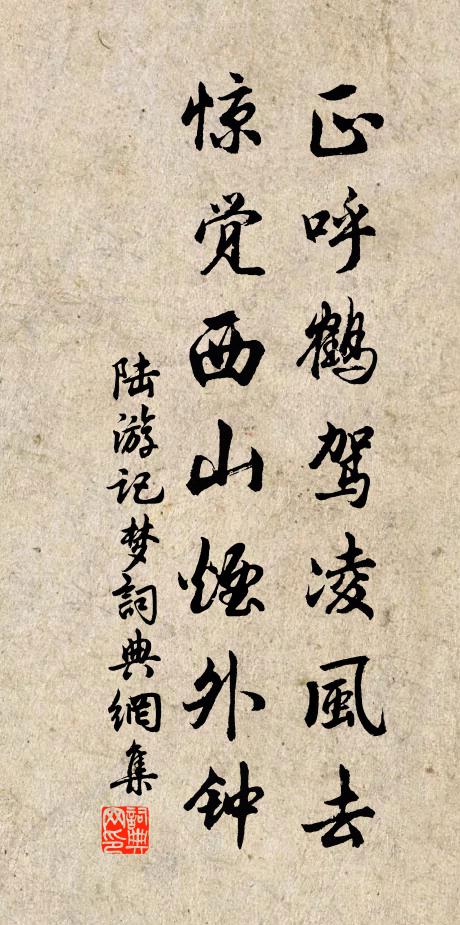 正呼鹤驾凌風去
惊觉西山煙外钟
陆游记梦詞典網集
詞典网印